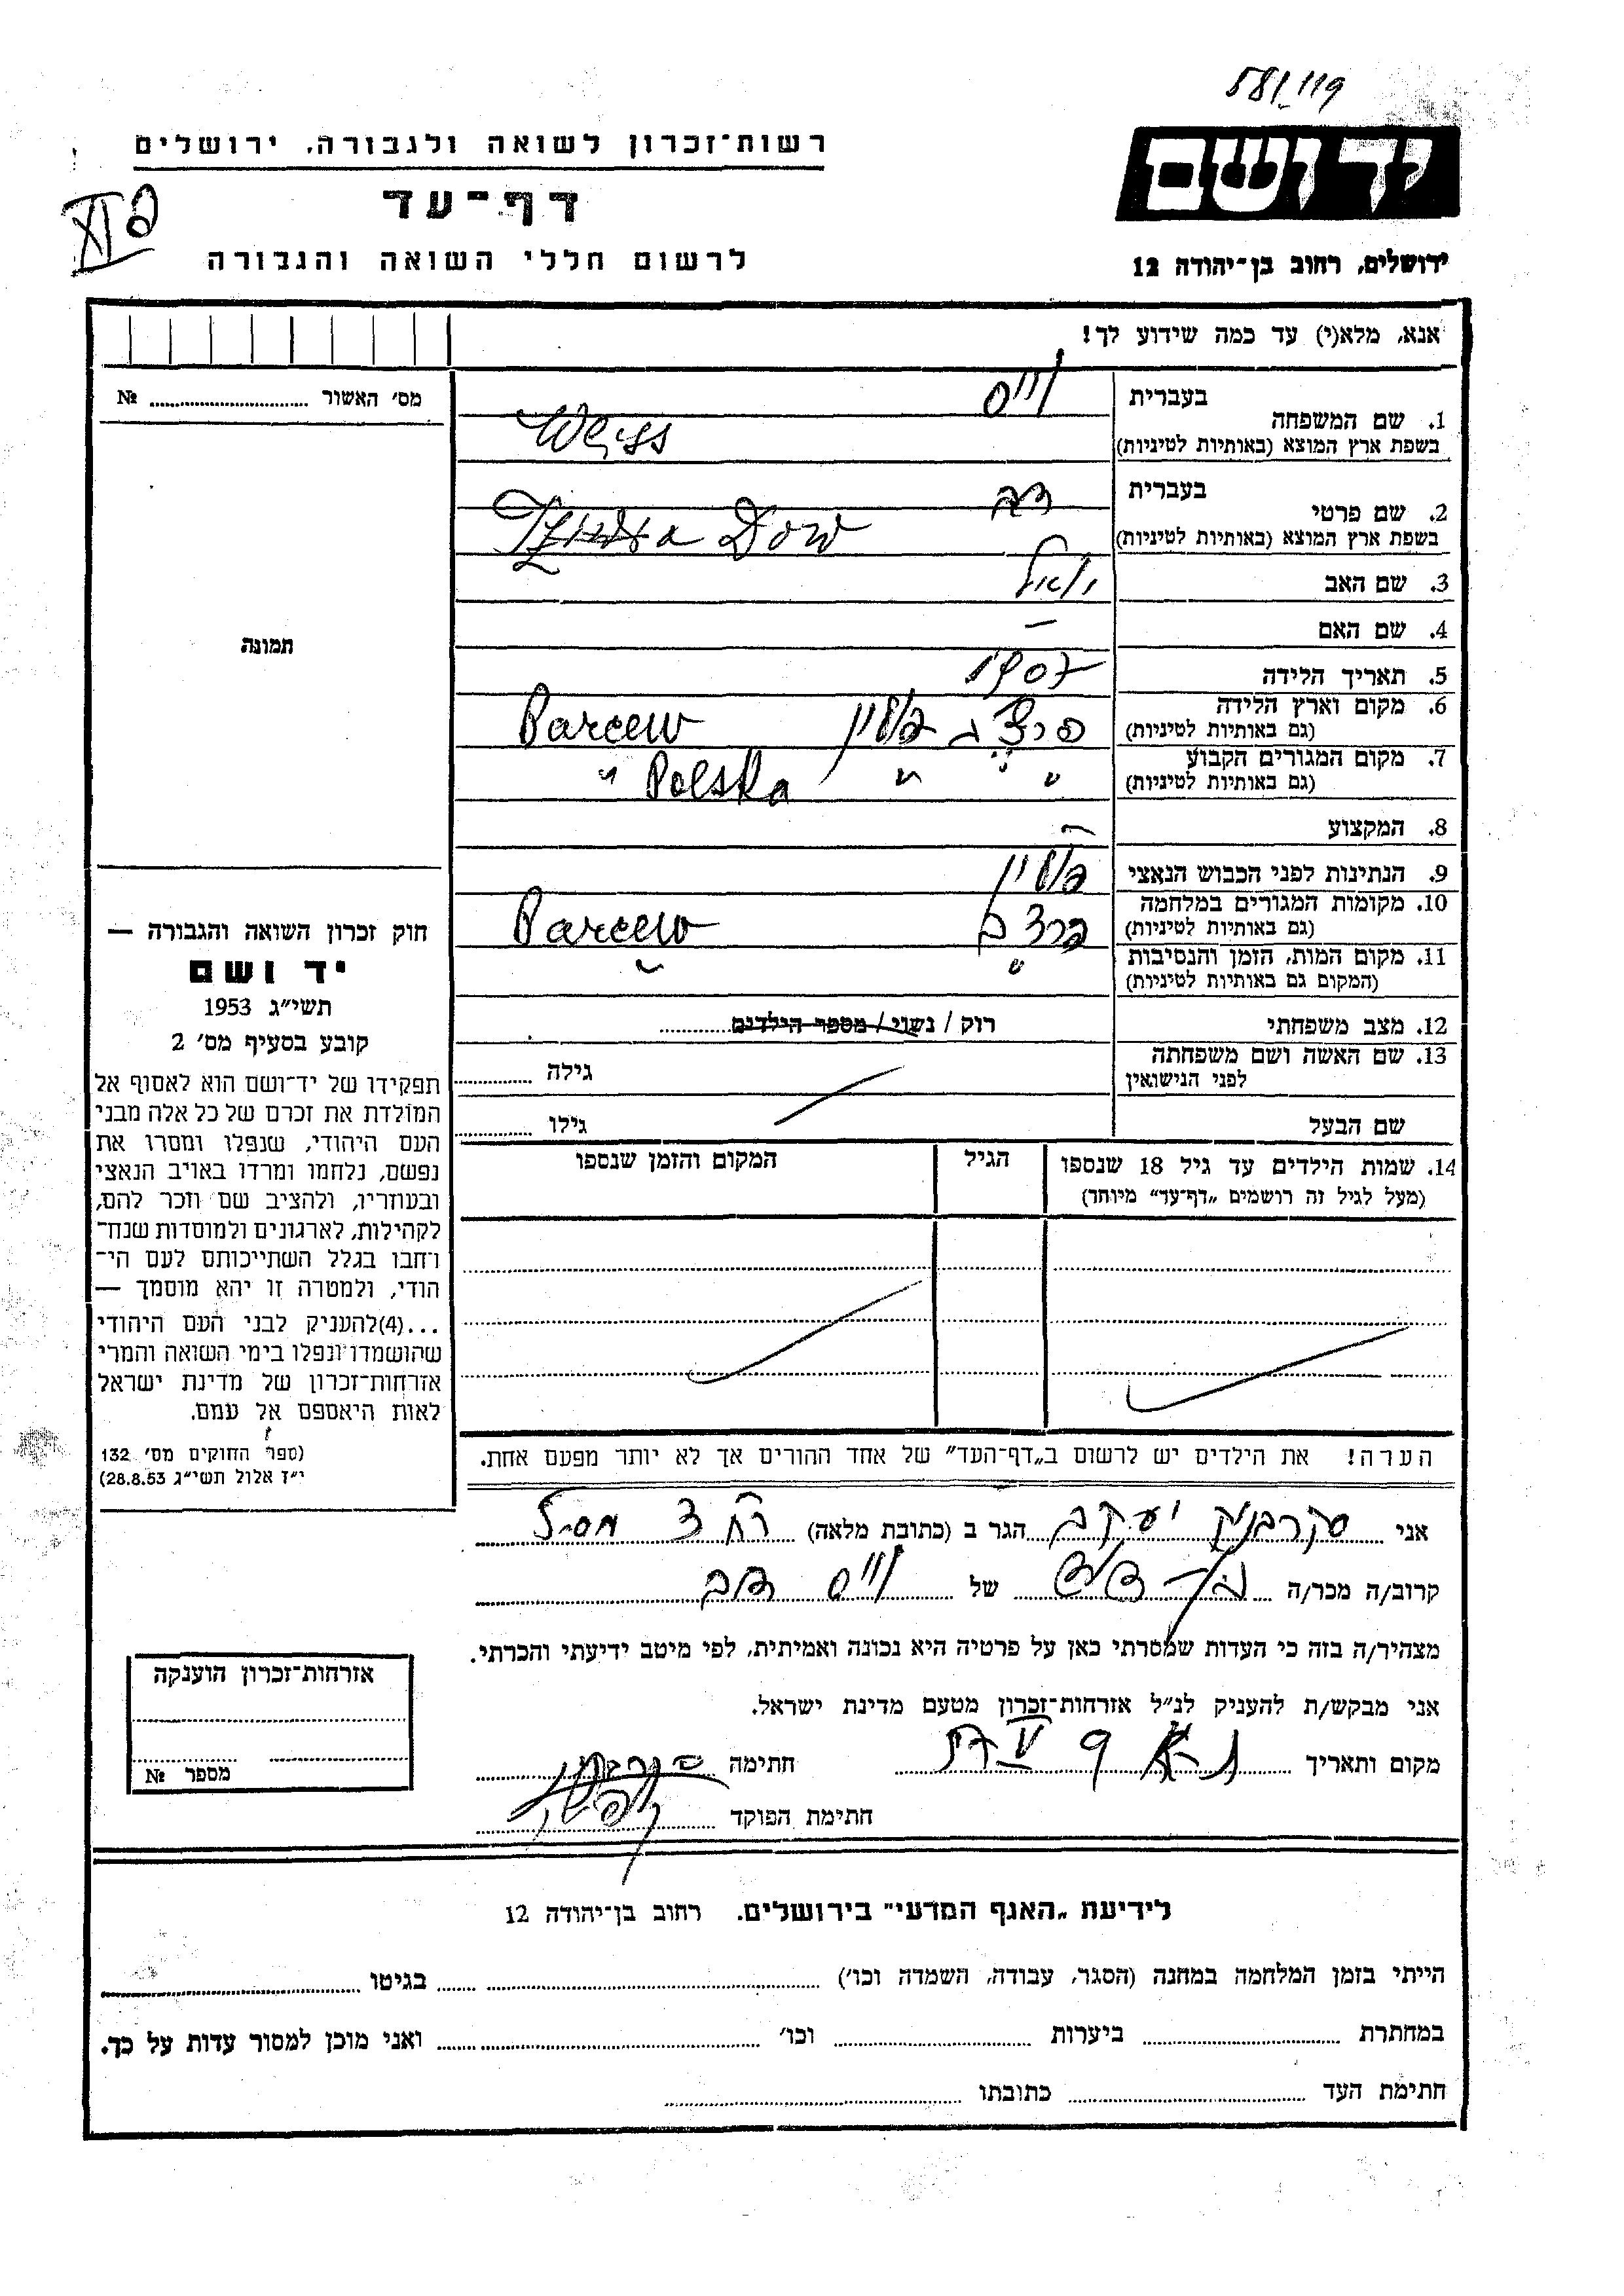 581/119
יד ושם
רשות־זכרון לשואה ולגבורה, ירושלים
דף־עד
לרשום חללי השואה והגבורה
ירושלים, רחוב בן־יהודה 12
אנא, מלא(י) עד כמה שידוע לך!
מס׳ האשור № ........
תמונה
1. שם המשפחה בעברית ווייס
בשפת ארץ המוצא (באותיות לטיניות) Weiss
2. שם פרטי בעברית דב
בשפת ארץ המוצא (באותיות לטיניות) Dow
3. שם האב יואל
4. שם האם —
5. תאריך הלידה 1907
6. מקום וארץ הלידה (גם באותיות לטיניות) פולין Parcew
7. מקום המגורים הקבוע (גם באותיות לטיניות) " " " Polska
8. המקצוע —
9. הנתינות לפני הכבוש הנאצי פולין
10. מקומות המגורים במלחמה (גם באותיות לטיניות) Parcew
11. מקום המות, הזמן והנסיבות (המקום גם באותיות לטיניות) " "
12. מצב משפחתי רוק / נשוי / מספר הילדים ........
13. שם האשה ושם משפחתה לפני הנישואין גילה ........
שם הבעל גילו ........
14. שמות הילדים עד גיל 18 שנספו
(מעל לגיל זה רושמים „דף־עד” מיוחד)
הגיל
המקום והזמן שנספו
חוק זכרון השואה והגבורה —
יד ושם
תשי״ג 1953
קובע בסעיף מס׳ 2
תפקידו של יד־ושם הוא לאסוף אל
המולדת את זכרם של כל אלה מבני
העם היהודי, שנפלו ומסרו את
נפשם, נלחמו ומרדו באויב הנאצי
ובעוזריו, ולהציב שם וזכר להם,
לקהילות, לארגונים ולמוסדות שנחר־
וחבו בגלל השתייכותם לעם הי־
הודי, ולמטרה זו יהא מוסמך —
...(4) להעניק לבני העם היהודי
שהושמדו ונפלו בימי השואה והמרי
אזרחות־זכרון של מדינת ישראל
לאות היאספם אל עמם.
(ספר החוקים מס׳ 132
י״ז אלול תשי״ג 28.8.53)
הערה! את הילדים יש לרשום ב„דף־העד” של אחד ההורים אך לא יותר מפעם אחת.
אני סקרבניק יעקב הגר ב (כתובת מלאה)
קרוב/ה מכר/ה של ווייס דב
מצהיר/ה בזה כי העדות שמסרתי כאן על פרטיה היא נכונה ואמיתית, לפי מיטב ידיעתי והכרתי.
אני מבקש/ת להעניק לנ״ל אזרחות־זכרון מטעם מדינת ישראל.
מקום ותאריך חתימה
חתימת הפוקד
אזרחות־זכרון הוענקה
מספר №
לידיעת „האגף המדעי” בירושלים. רחוב בן־יהודה 12
הייתי בזמן המלחמה במחנה (הסגר, עבודה, השמדה וכו׳) ........ בגיטו ........
במחתרת ........ ביערות ........ וכו׳ ........ ואני מוכן למסור עדות על כך.
חתימת העד ........ כתובתו ........